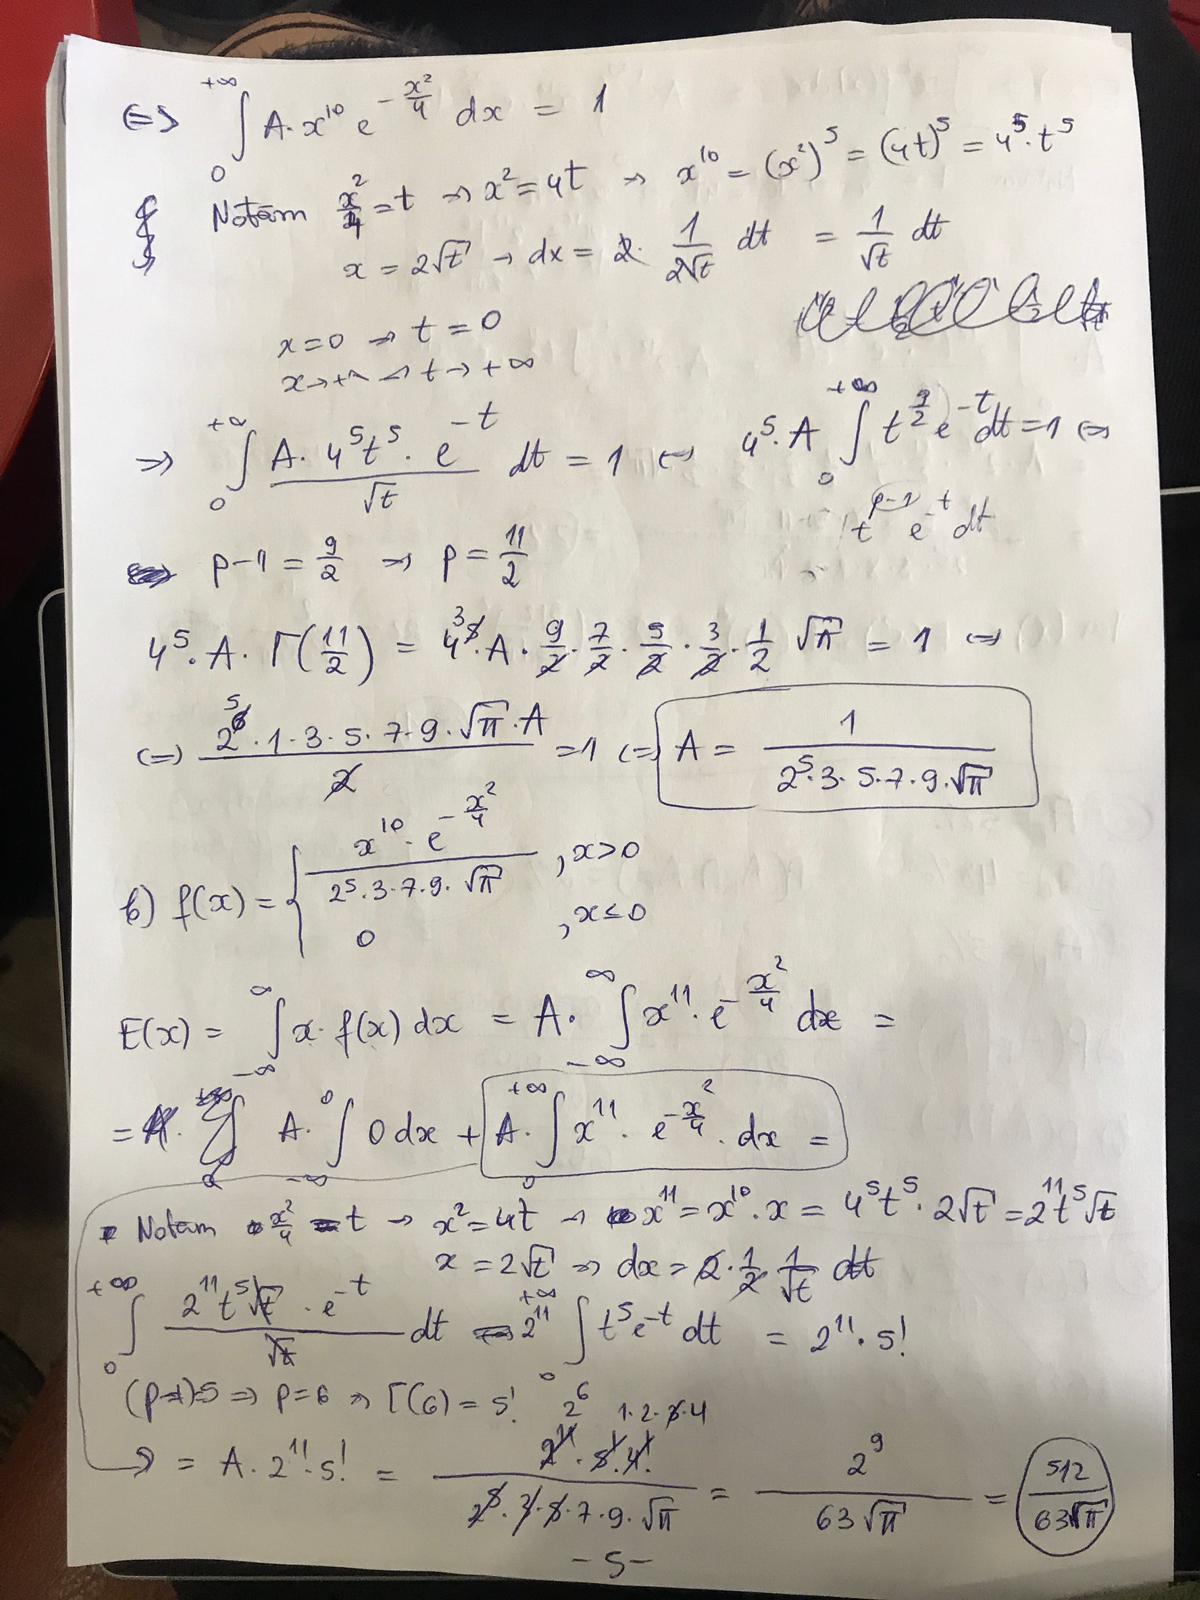 ⇔ ∫₀^{+∞} A·x¹⁰ e^{-x²/4} dx = 1
Notăm x²/4 = t → x² = 4t → x¹⁰ = (x²)⁵ = (4t)⁵ = 4⁵·t⁵
x = 2√t → dx = 2· 1/(2√t) dt = 1/√t dt
x=0 → t=0
x→+∞ → t→+∞
⇒ ∫₀^{+∞} (A·4⁵t⁵·e^{-t})/√t dt = 1 ⇔ 4⁵·A ∫₀^{+∞} t^{9/2} e^{-t} dt = 1 ⇔
t^{p-1} e^{-t} dt
p-1 = 9/2 ⇒ p = 11/2
4⁵·A·Γ(11/2) = 4³·A· 9/2 · 7/2 · 5/2 · 3/2 · 1/2 √π = 1 ⇔
⇔ (2⁵·1·3·5·7·9·√π·A)/2 = 1 ⇔ A = 1/(2⁵·3·5·7·9·√π)
b) f(x) = { (x¹⁰·e^{-x²/4})/(2⁵·3·7·9·√π) , x>0
0 , x≤0
E(x) = ∫_{-∞}^{∞} x·f(x) dx = A· ∫_{-∞}^{∞} x¹¹·e^{-x²/4} dx =
= A· ∫_{-∞}^{0} 0 dx + A· ∫₀^{+∞} x¹¹· e^{-x²/4}· dx =
Notăm x²/4 = t → x² = 4t → x¹¹ = x¹⁰·x = 4⁵t⁵·2√t = 2¹¹t⁵√t
x = 2√t ⇒ dx = 2· 1/2 · 1/√t dt
∫₀^{+∞} (2¹¹t⁵√t·e^{-t})/√t dt = 2¹¹ ∫₀^{+∞} t⁵e^{-t} dt = 2¹¹·5!
(p-1)=5 ⇒ p=6 ⇒ Γ(6) = 5! 2⁶ 1·2·3·4
⇒ = A·2¹¹·5! = (2¹¹·5·4!)/(2⁵·3·5·7·9·√π) = 2⁹/(63√π) = 512/(63√π)
-5-